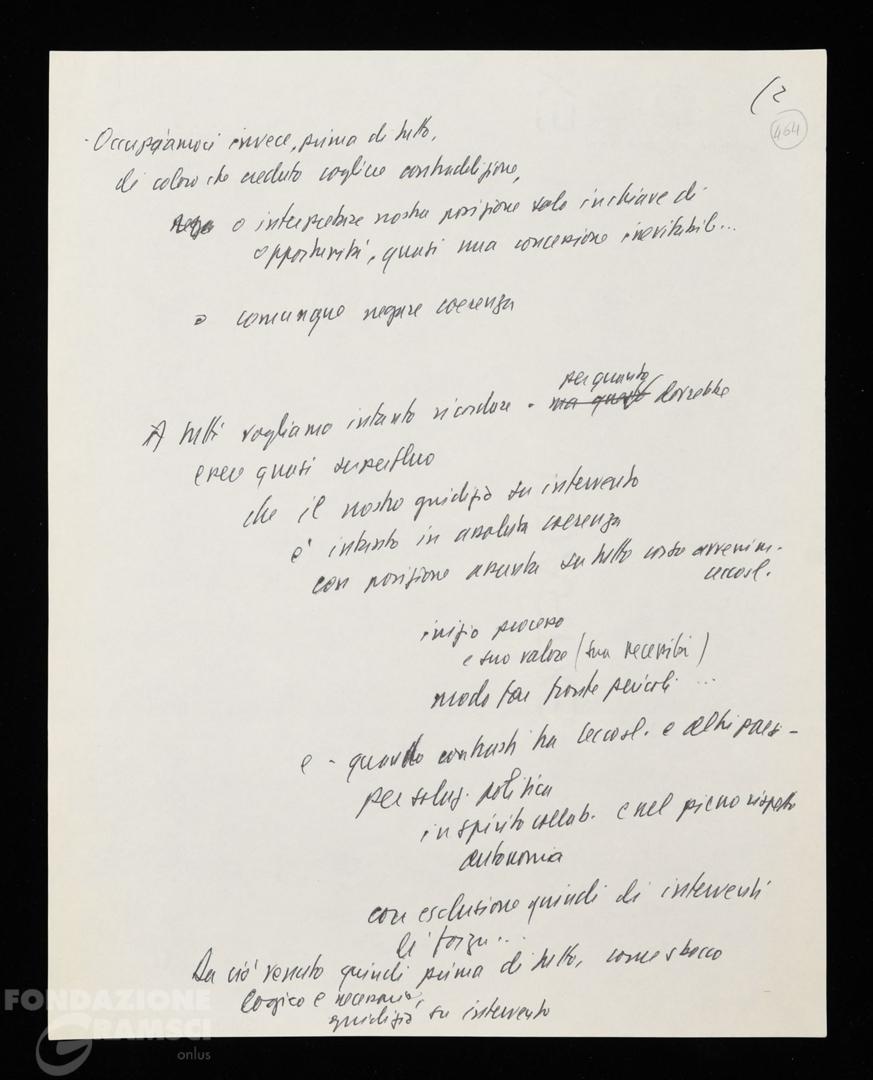 (2
464
- Occupiamoci invece, prima di tutto,
di coloro che creduto cogliere contraddizione,
o interpretare nostra posizione solo in chiave di
opportunità, quasi una concessione inevitabil...
o comunque negare coerenza
A tutti vogliamo intanto ricordare - per quanto dovrebbe
esser quasi superfluo
che il nostro giudizio su intervento
è intanto in assoluta coerenza
con posizione assunta su tutto corso avvenim.
cecosl.
inizio processo
e suo valore (sua necessità)
modo far fronte pericoli ...
e - quando contrasti tra Cecosl. e altri paesi -
per soluz. politica
in spirito collab. e nel pieno rispetto
autonomia
con esclusione quindi di interventi
di forza...
Da ciò venuto quindi prima di tutto, come sbocco
logico e necessario,
giudizio su intervento
FONDAZIONE
GRAMSCI
onlus